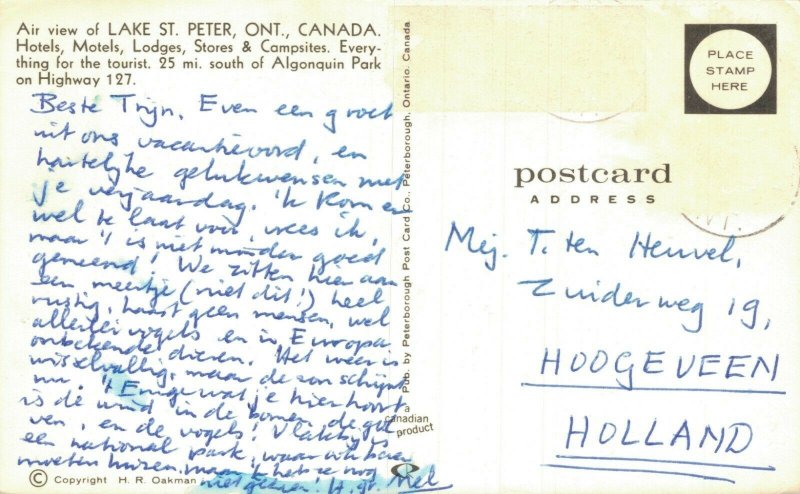 Air view of LAKE ST. PETER, ONT., CANADA.
Hotels, Motels, Lodges, Stores & Campsites. Every-
thing for the tourist. 25 mi. south of Algonquin Park
on Highway 127.
Beste Trijn, Even een groet
uit ons vacantieoord, en
hartelijke gelukwensen met
je verjaardag. 'k Kom er
wel te laat voor, vrees ik,
maar 't is niet minder goed
gemeend! We zitten hier aan
een meertje (niet dit!) heel
rustig, haast geen mensen, wel
allerlei vogels en in Europa
onbekende dieren. Het weer is
wisselvallig, maar de zon schijnt
nu. 't Enige wat je hier hoort
is de wind in de bomen, de gol
ven, en de vogels! Vlakbij is
een national park, waar ook beren
moeten huizen, maar 'k heb ze nog
niet gezien! H. gr. Mel
© Copyright H. R. Oakman
Pub. by Peterborough Post Card Co., Peterborough, Ontario, Canada
a
canadian
product
PLACE
STAMP
HERE
postcard
ADDRESS
Mej. T. ten Heuvel,
Zuiderweg 19,
HOOGEVEEN
HOLLAND